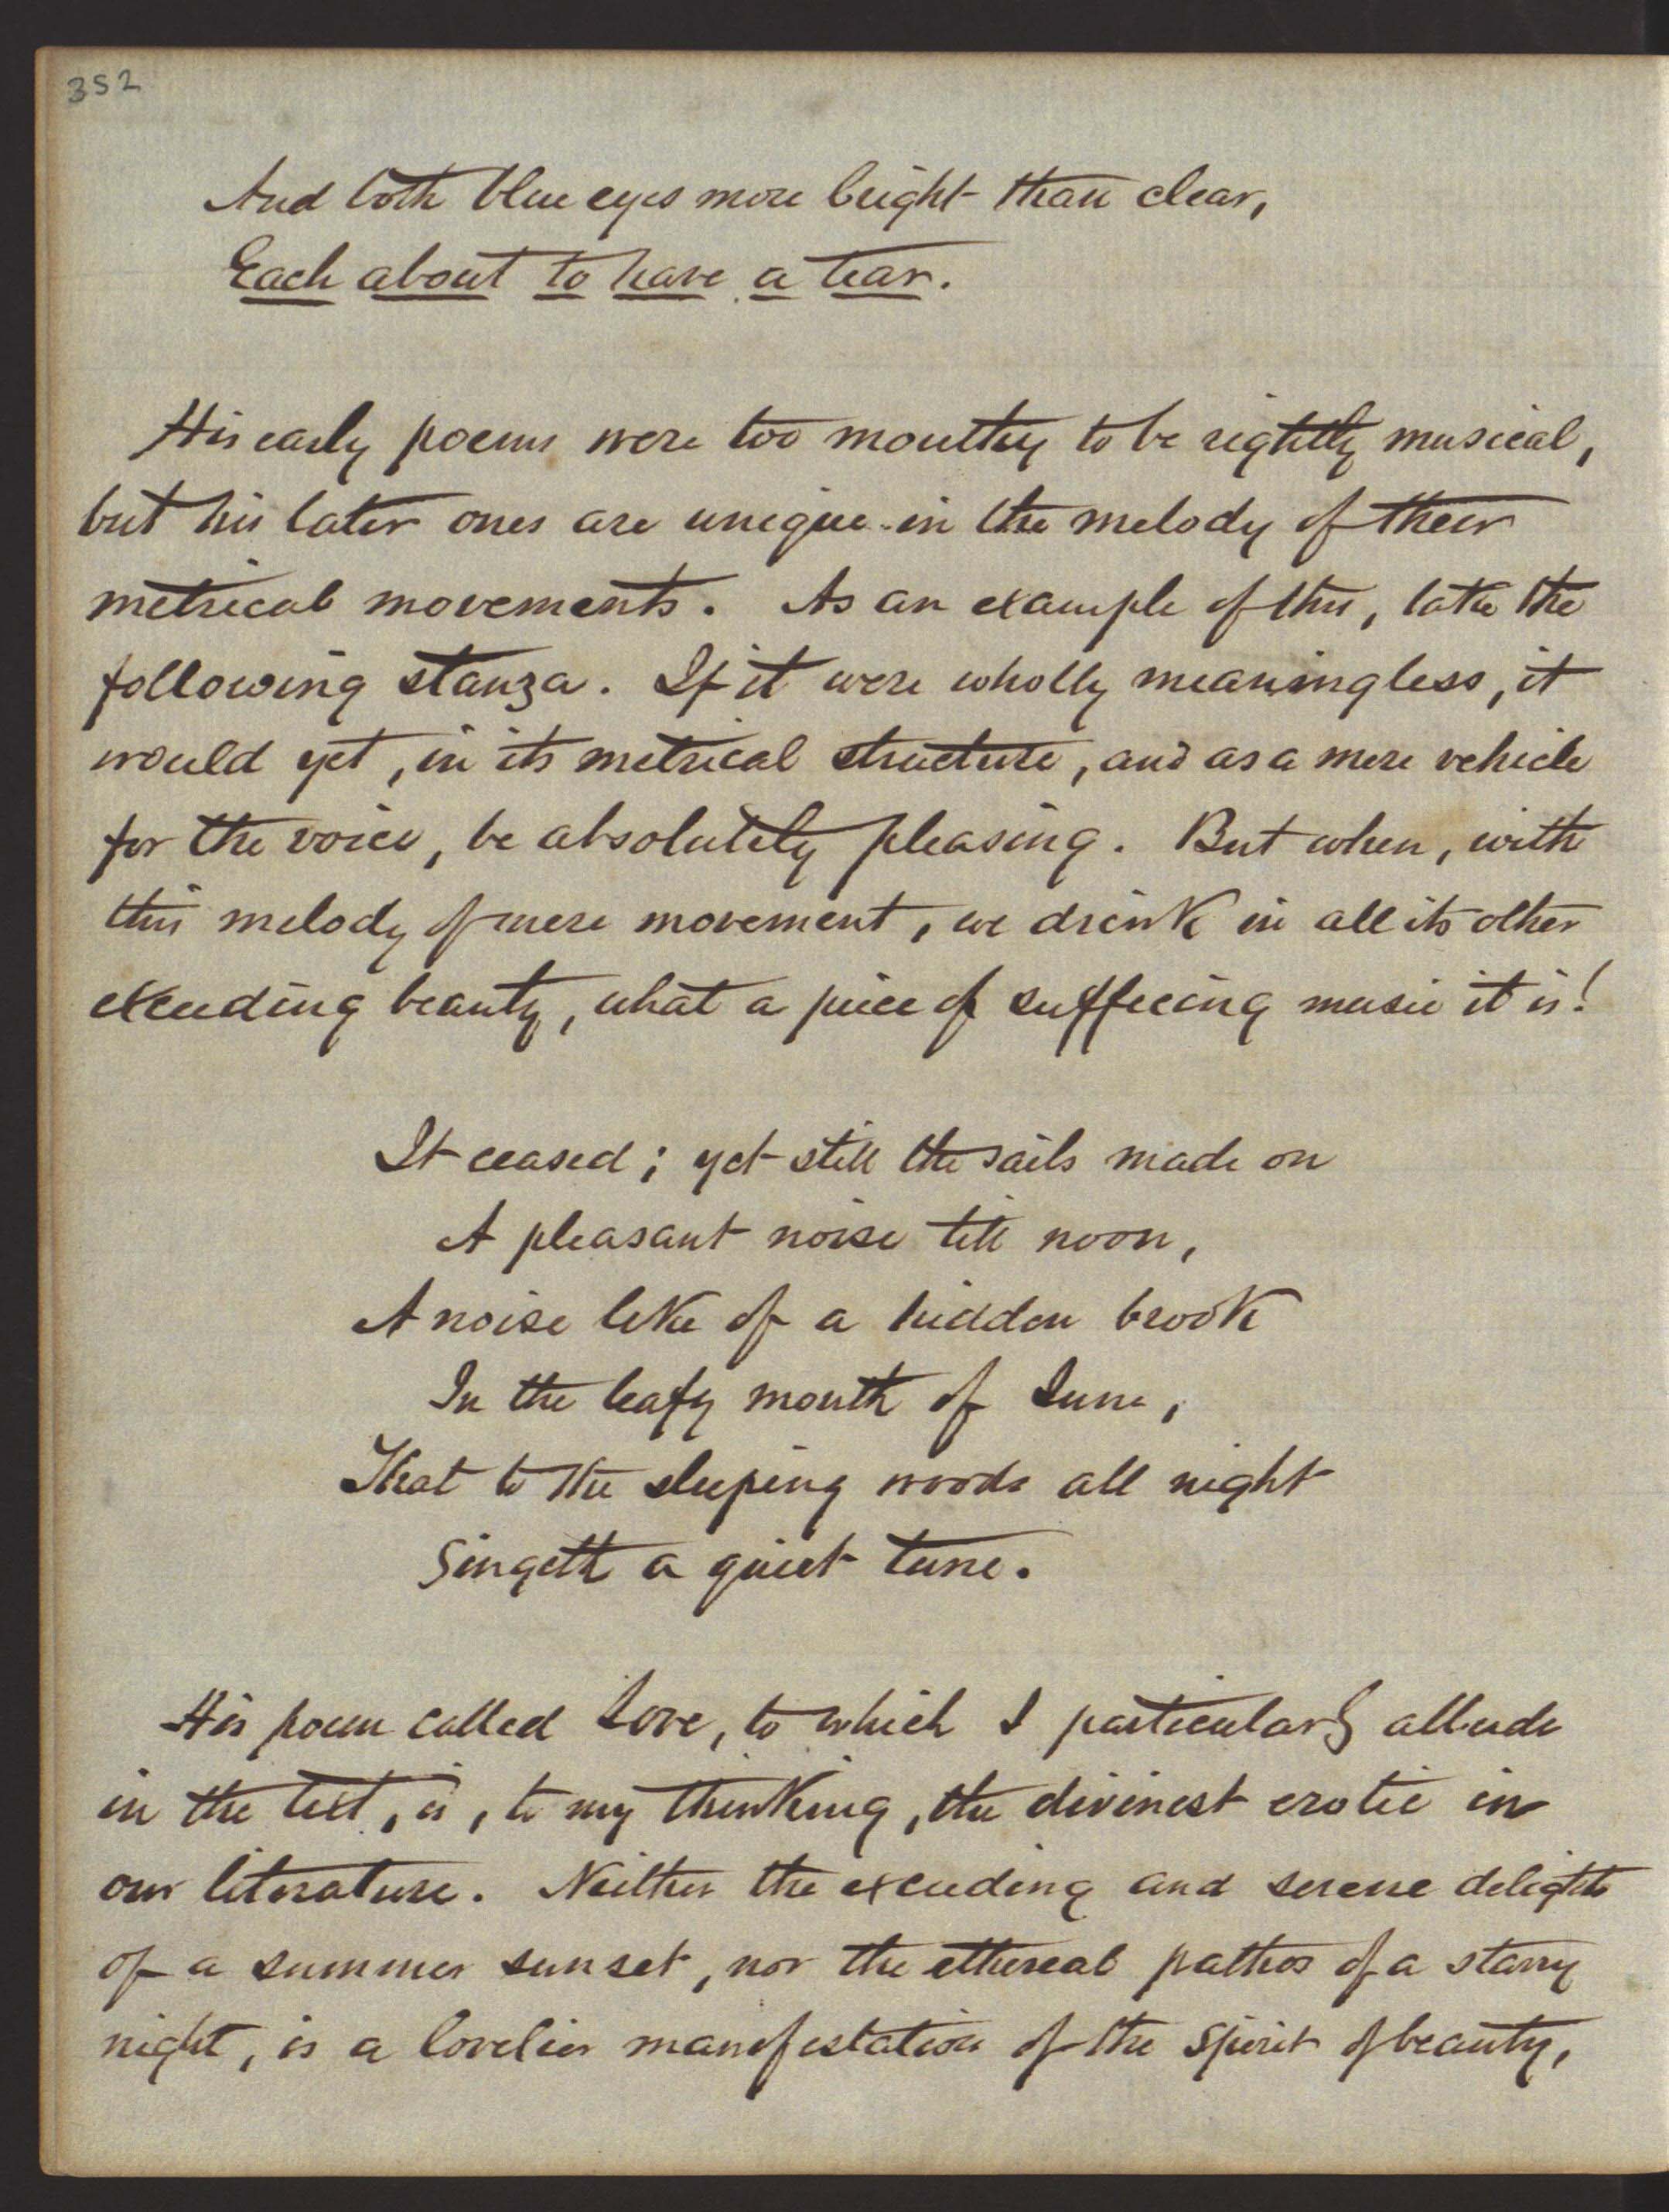 352
And both blue eyes more bright than clear,
Each about to have a tear.
His early poems were too mouthy to be rightly musical,
but his later ones are unique in the melody of their
metrical movements. As an example of this, take the
following stanza. If it were wholly meaningless, it
would yet, in its metrical structure, and as a mere vehicle
for the voice, be absolutely pleasing. But when, with
this melody of mere movement, we drink in all its other
exceeding beauty, what a piece of sufficing music it is!
It ceased; yet still the sails made on
A pleasant noise till noon,
A noise like of a hidden brook
In the leafy month of June,
That to the sleeping woods all night
Singeth a quiet tune.
His poem called Love, to which I particularly allude
in the text, is, to my thinking, the divinest erotic in
our literature. Neither the exceeding and serene delights
of a summer sunset, nor the ethereal pathos of a starry
night, is a lovelier manifestation of the spirit of beauty,